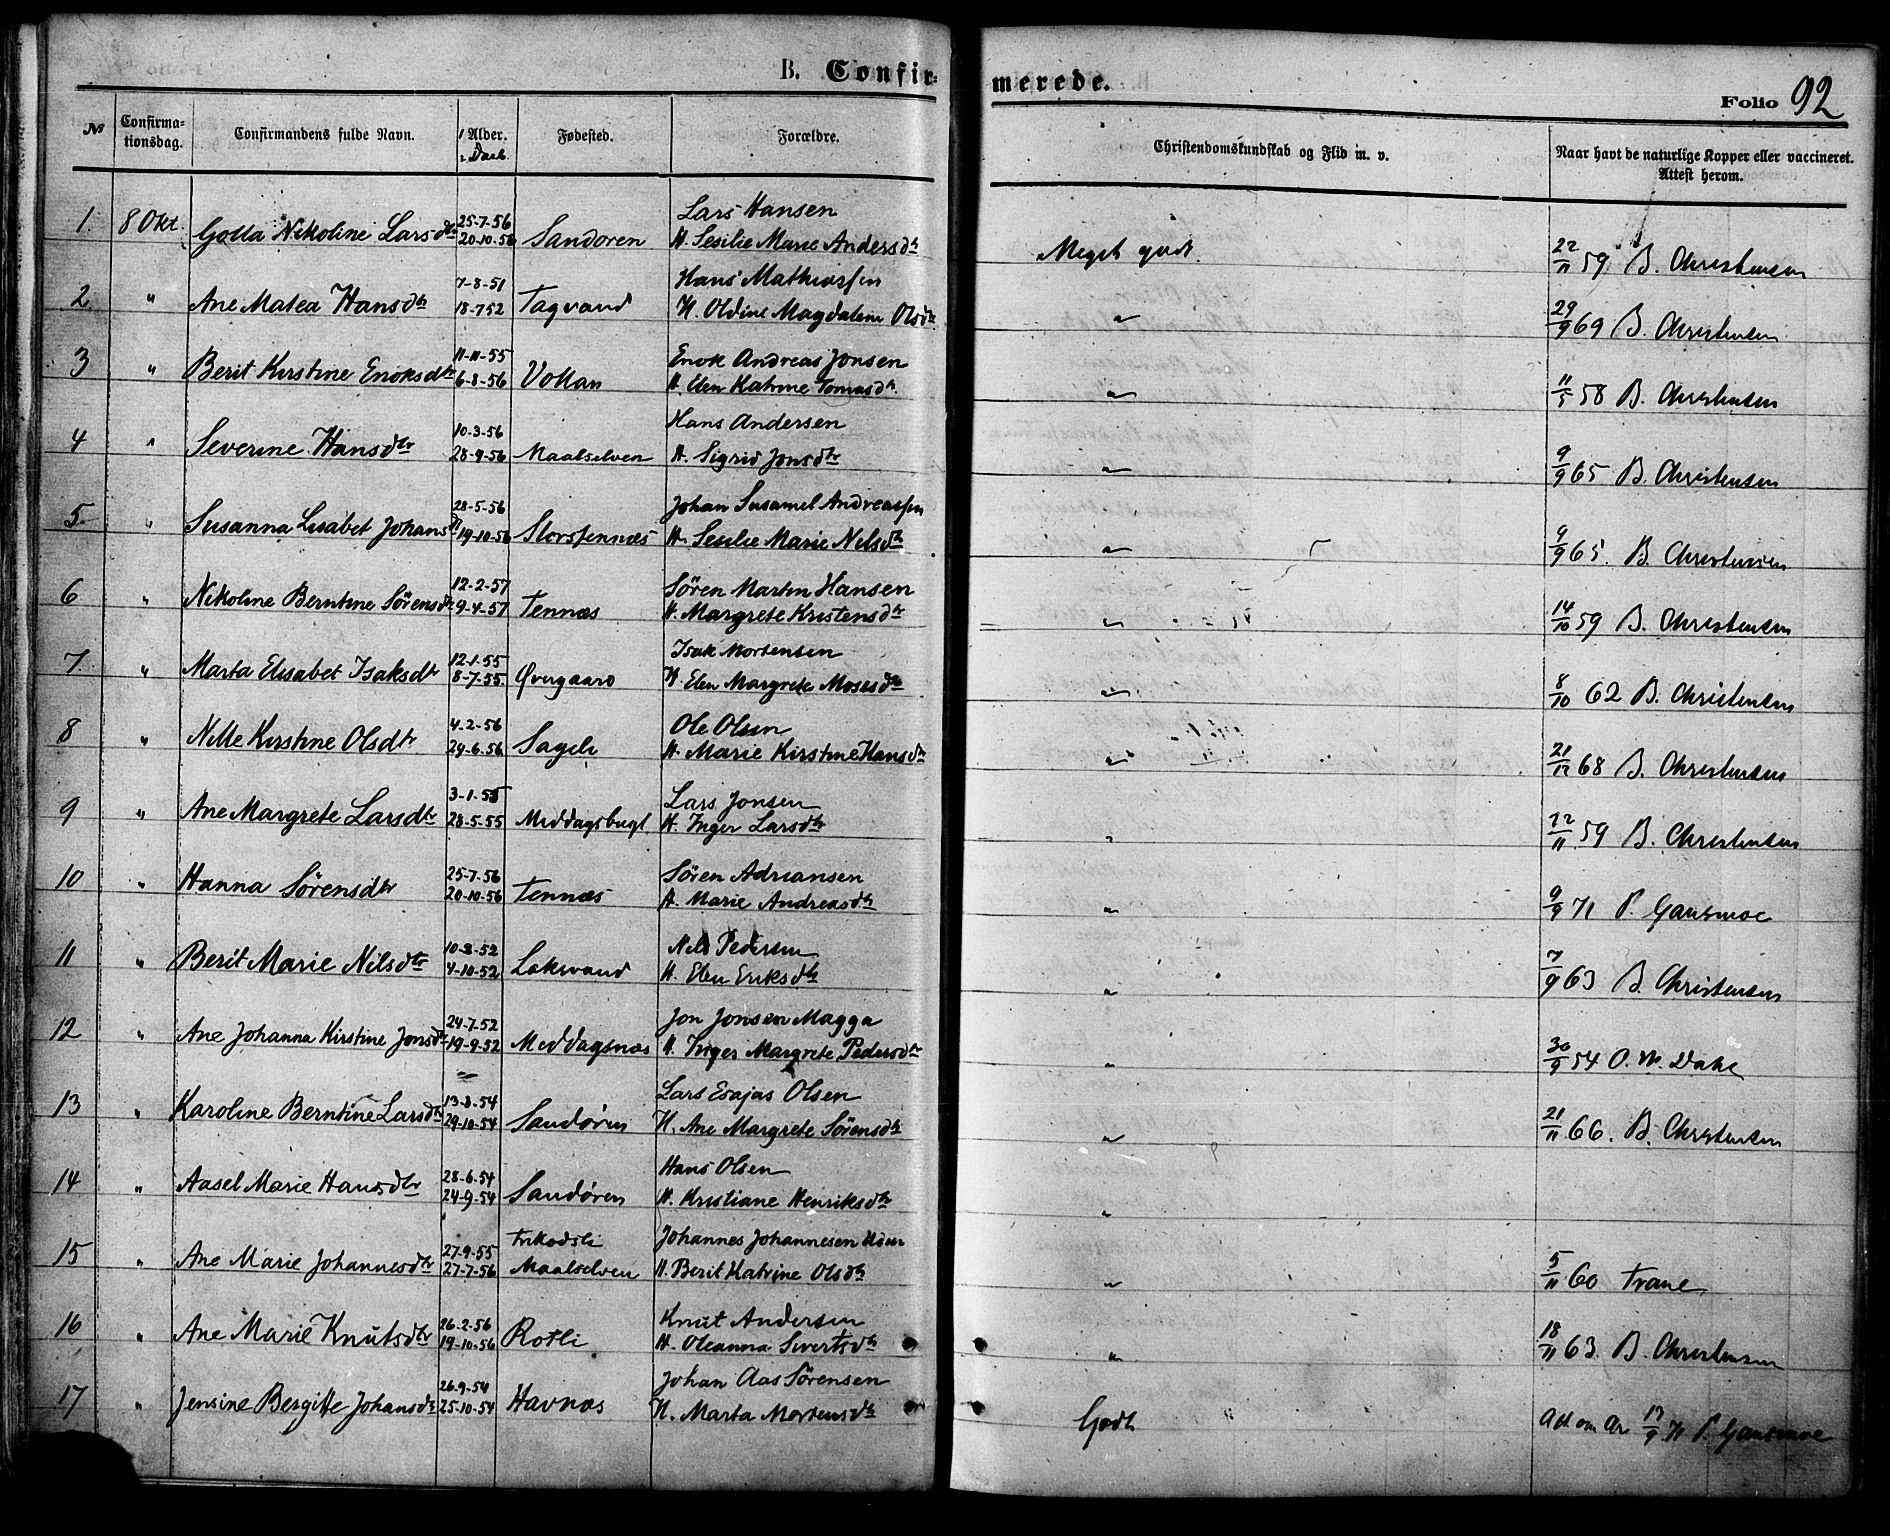 B. Confirmerede.
Folio 92
No
Confirmationsdag.
Confirmandens fulde Navn.
1 Alder. 2 Daab.
Fødested.
Forældre.
Christendomskundskab og Flid m. v.
Naar havt de naturlige Kopper eller vaccineret. Attest herom.
25-7-56 Lars Hansen
1. 8 Okt. Golla Nikoline Larsdtr 20-10-56 Sandøren H. Sesilie Marie Andersdtr Meget godt. 22/11 59 B. Christensen
7-8-51 Hans Mathiassen
2 " Ane Matea Hansdtr 18-7 52 Tagvand H. Oldine Magdalene Olsdtr " 29/9 69 B. Christensen
11-11-55 Enok Andreas Jonsen
3 " Berit Kirstine Enoksdtr 6-8-56 Vollan H. Elen Katrine Tomasdtr. " 11/5 58 B. Christensen
10-3-56 Hans Andersen
4 " Severine Hansdtr 28-9-56 Maalselven H. Sigrid Jonsdtr " 9/9 65 B. Christensen
28-5-56 Johan Susamel Andreassen
5. " Susanna Lisabet Johansdtr 19-10-56 Storstennæs H. Sesilie Marie Nilsdtr " 9/9 65. B. Christensen
12-2-57 Sören Martin Hansen
6 " Nikoline Berntine Sörensdtr 9-4-57 Tennæs H. Margrete Kristensdtr " 14/10 59 B. Christensen
12-1-55 Isak Mortensen
7. " Marta Elisabet Isaksdtr 8-7-55. Øvergaard H. Elen Margrete Mosesdtr " 8/10 62 B. Christensen
4-2-56 Ole Olsen
8 " Nille Kirstine Olsdtr 29-6-56 Sageli H. Marie Kirstine Hansdtr " 21/12 68 B. Christensen
3-1-55 Lars Jonsen
9 " Ane Margrete Larsdtr 28-5-55 Meddagsbugt H. Inger Larsdtr " 22/11 59 B. Christensen
25-7-56 Søren Adriansen
10 " Hanna Sörensdtr 20-10-56 Tennæs H. Marie Andreasdtr " 9/9 71 P. Gausmoe
10-8-52 Nils Pedersen
11 " Berit Marie Nilsdtr 4-10-52 Laksvand H. Elen Eriksdtr " 7/9 63 B. Christensen
24-7-52 Jon Jonsen Magga
12 " Ane Johanna Kirstine Jonsdtr 19-9-52 Meddagsnæs H. Inger Margrete Pedersdtr " 30/9 54 O. W. Dahl
13-8-54 Lars Esajas Olsen
13 " Karoline Berntine Larsdtr 29-10-54 Sandøren H. Ane Margrete Sörensdtr " 21/11 66. B. Christensen
28-6-54 Hans Olsen
14 " Aasel Marie Hansdtr 24-9-54 Sandøren H. Kristiane Henriksdtr "
27-9-55 Johannes Johannesen
15 " Ane Marie Johannesdtr 27-7-56 Maalselven H. Berit Katrine Olsdtr " 5/11 60 Trane
26-2-56 Knut Andersen
16 " Ane Marie Knutsdtr 19-10-56 Rotli H. Oleanna Sivertsdtr " 18/11 63. B. Christensen
26-9-54 Johan Aas Sörensen
17 " Jensine Bergitte Johansdtr 25-10-54 Havnæs H. Marta Mortensdtr Godt 17/9 71 P. Gausmoe